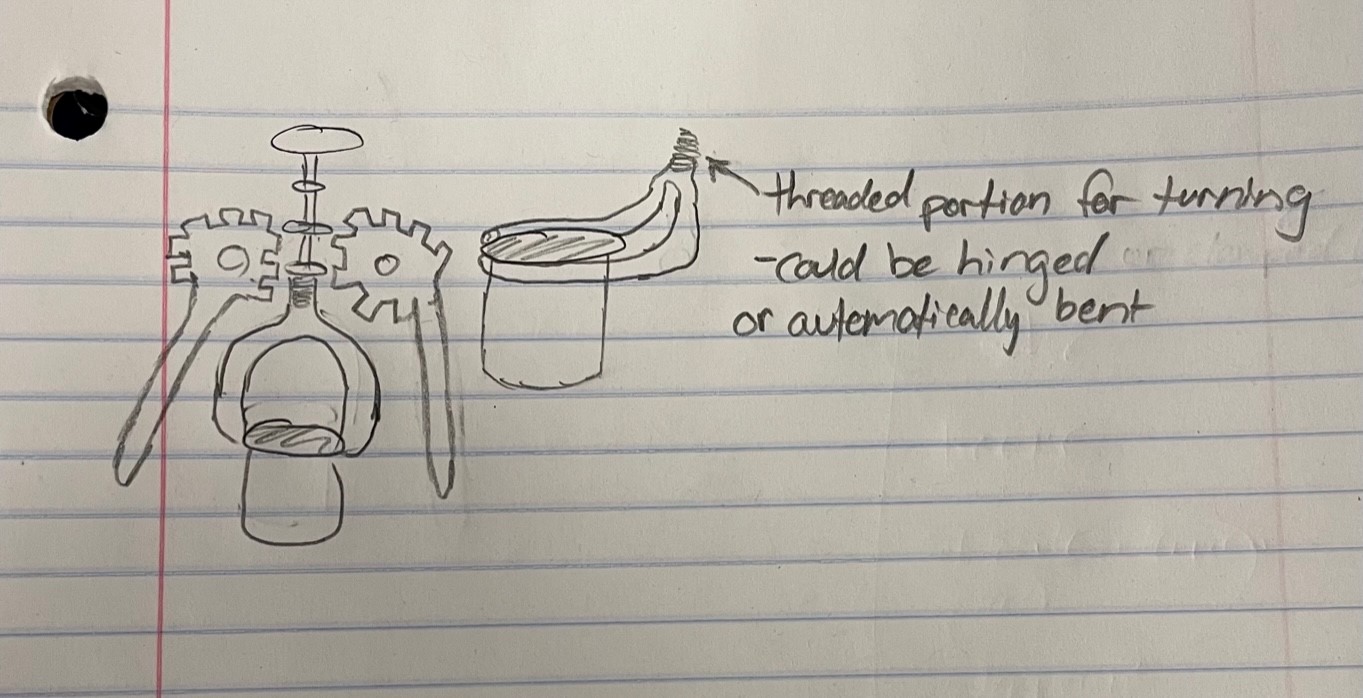 threaded portion for turning
-could be hinged
or automatically bent